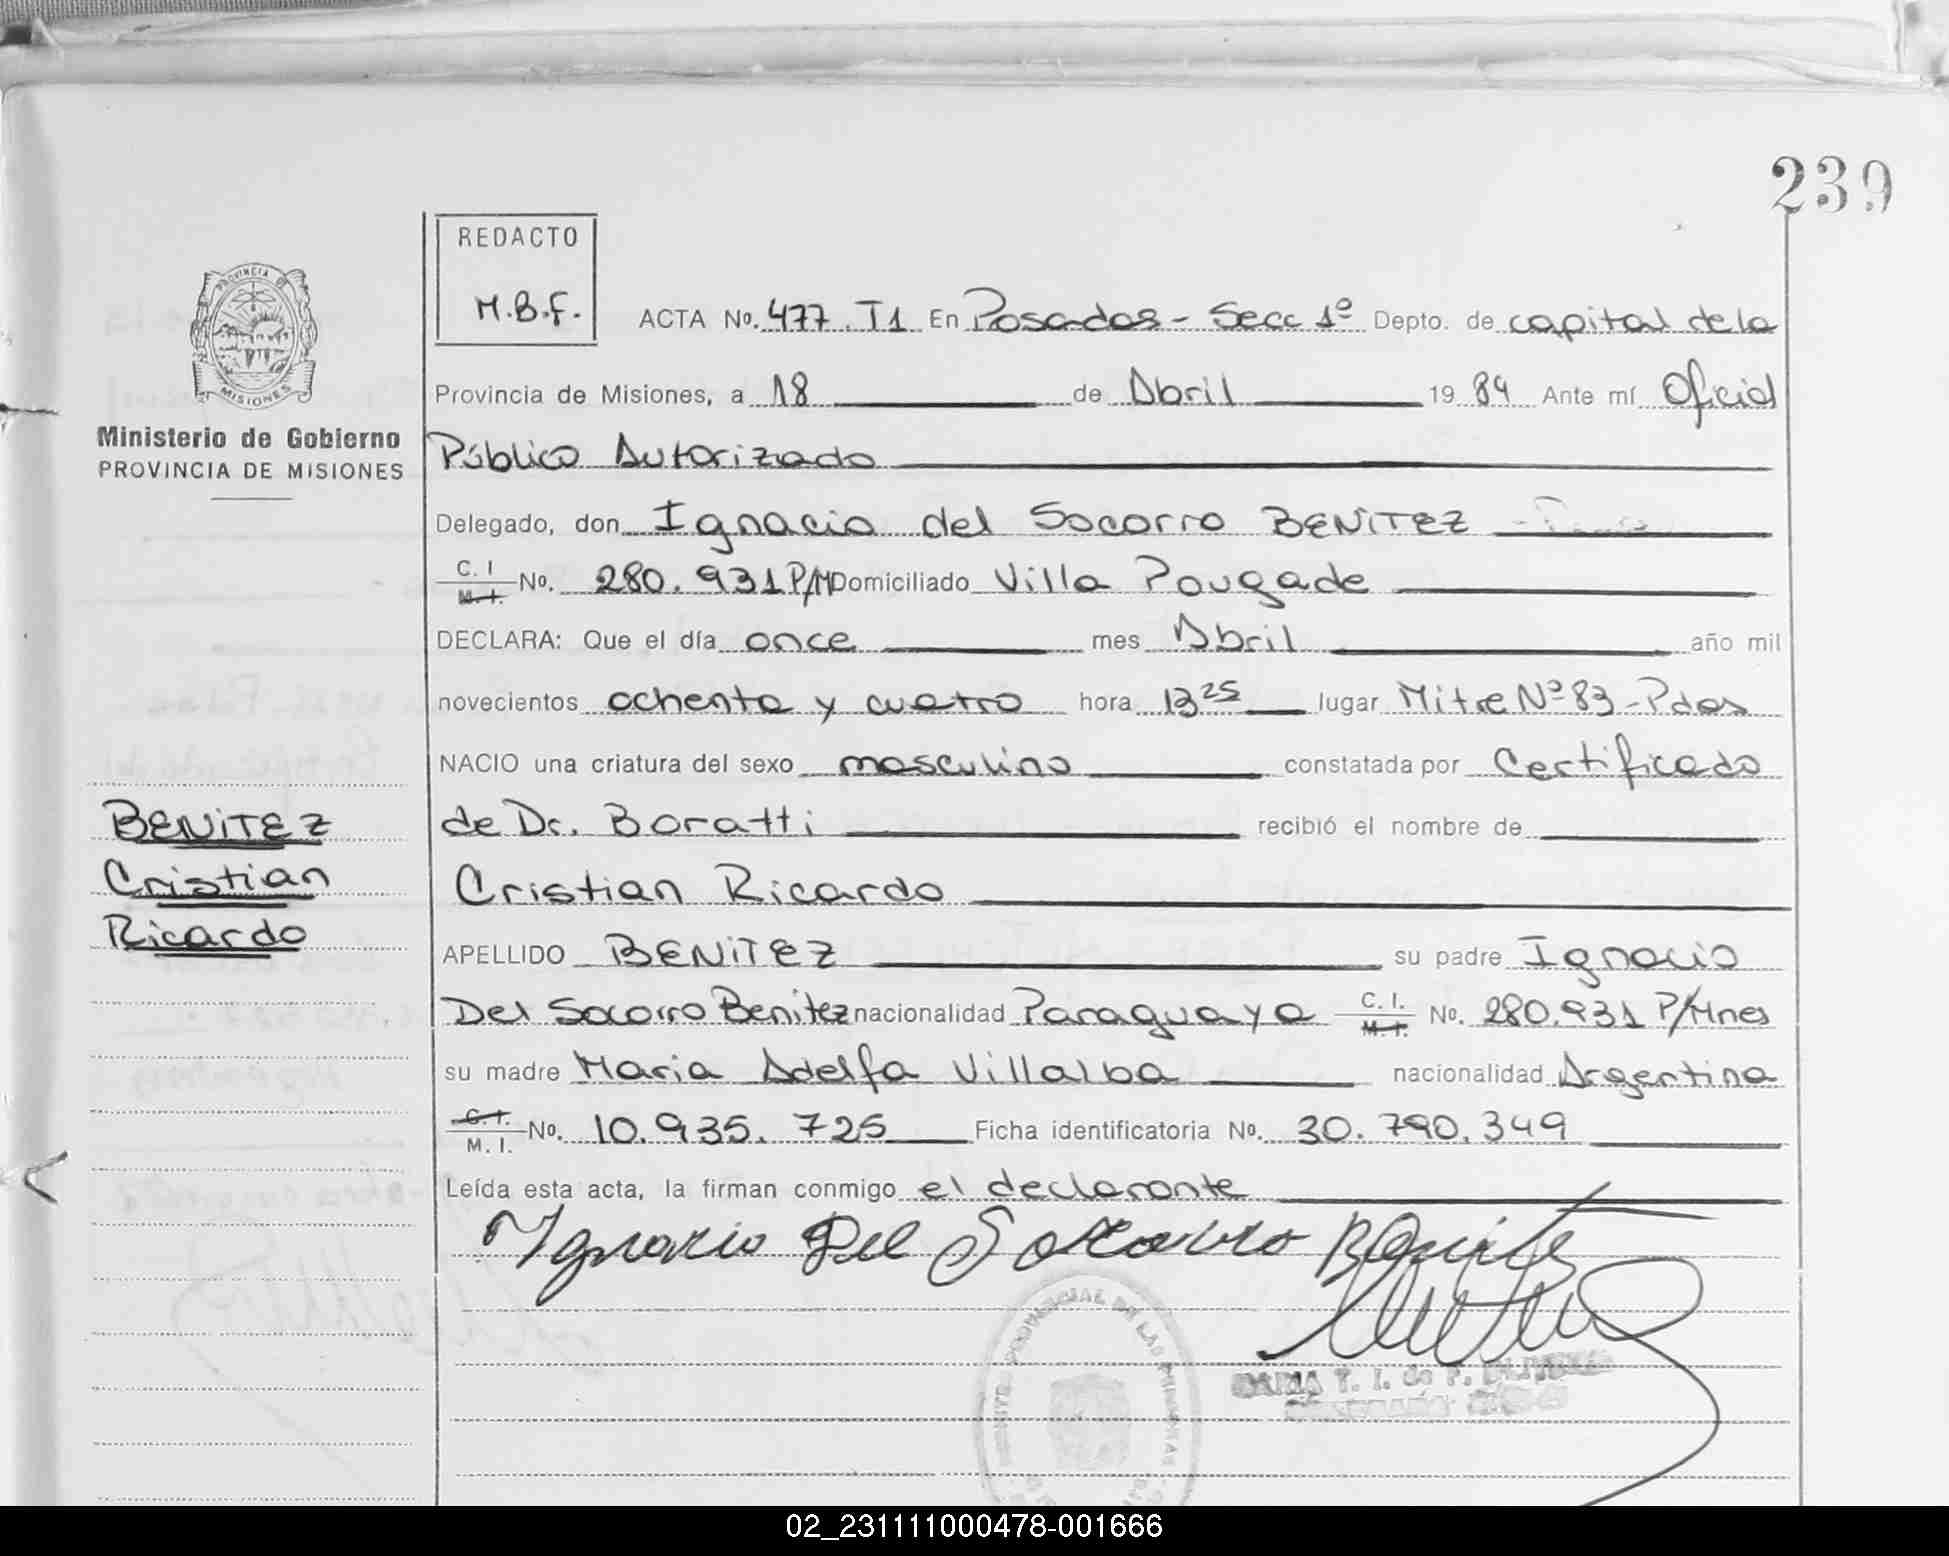 239
REDACTO
M.B.F.
PROVINCIA DE
MISIONES
Ministerio de Gobierno
PROVINCIA DE MISIONES
ACTA No. 477. T1 En Posadas - Secc 1º Depto. de capital de la
Provincia de Misiones, a 18 de Abril 1984 Ante mí Oficial
Público Autorizado
Delegado, don Ignacio del Socorro BENITEZ
C. I
M. I. No. 280.931 P/M Domiciliado Villa Pougade
DECLARA: Que el día once mes Abril año mil
novecientos ochenta y cuatro hora 13 25 lugar Mitre Nº 83 - Pdas
NACIO una criatura del sexo masculino constatada por Certificado
de Dr. Boratti recibió el nombre de
Cristian Ricardo
BENITEZ
Cristian
Ricardo
APELLIDO BENITEZ su padre Ignacio
Del Socorro Benitez nacionalidad Paraguaya C. I.
M. I. No. 280.931 P/Mnes
su madre Maria Adelfa Villalba nacionalidad Argentina
C. I.
M. I. No. 10.935.725 Ficha identificatoria No. 30.790.349
Leída esta acta, la firman conmigo el declarante
Ygnacio Del Socorro Benitez
MARIA T. I. de F.
PROVINCIAL DE LAS PERSONAS
02_231111000478-001666